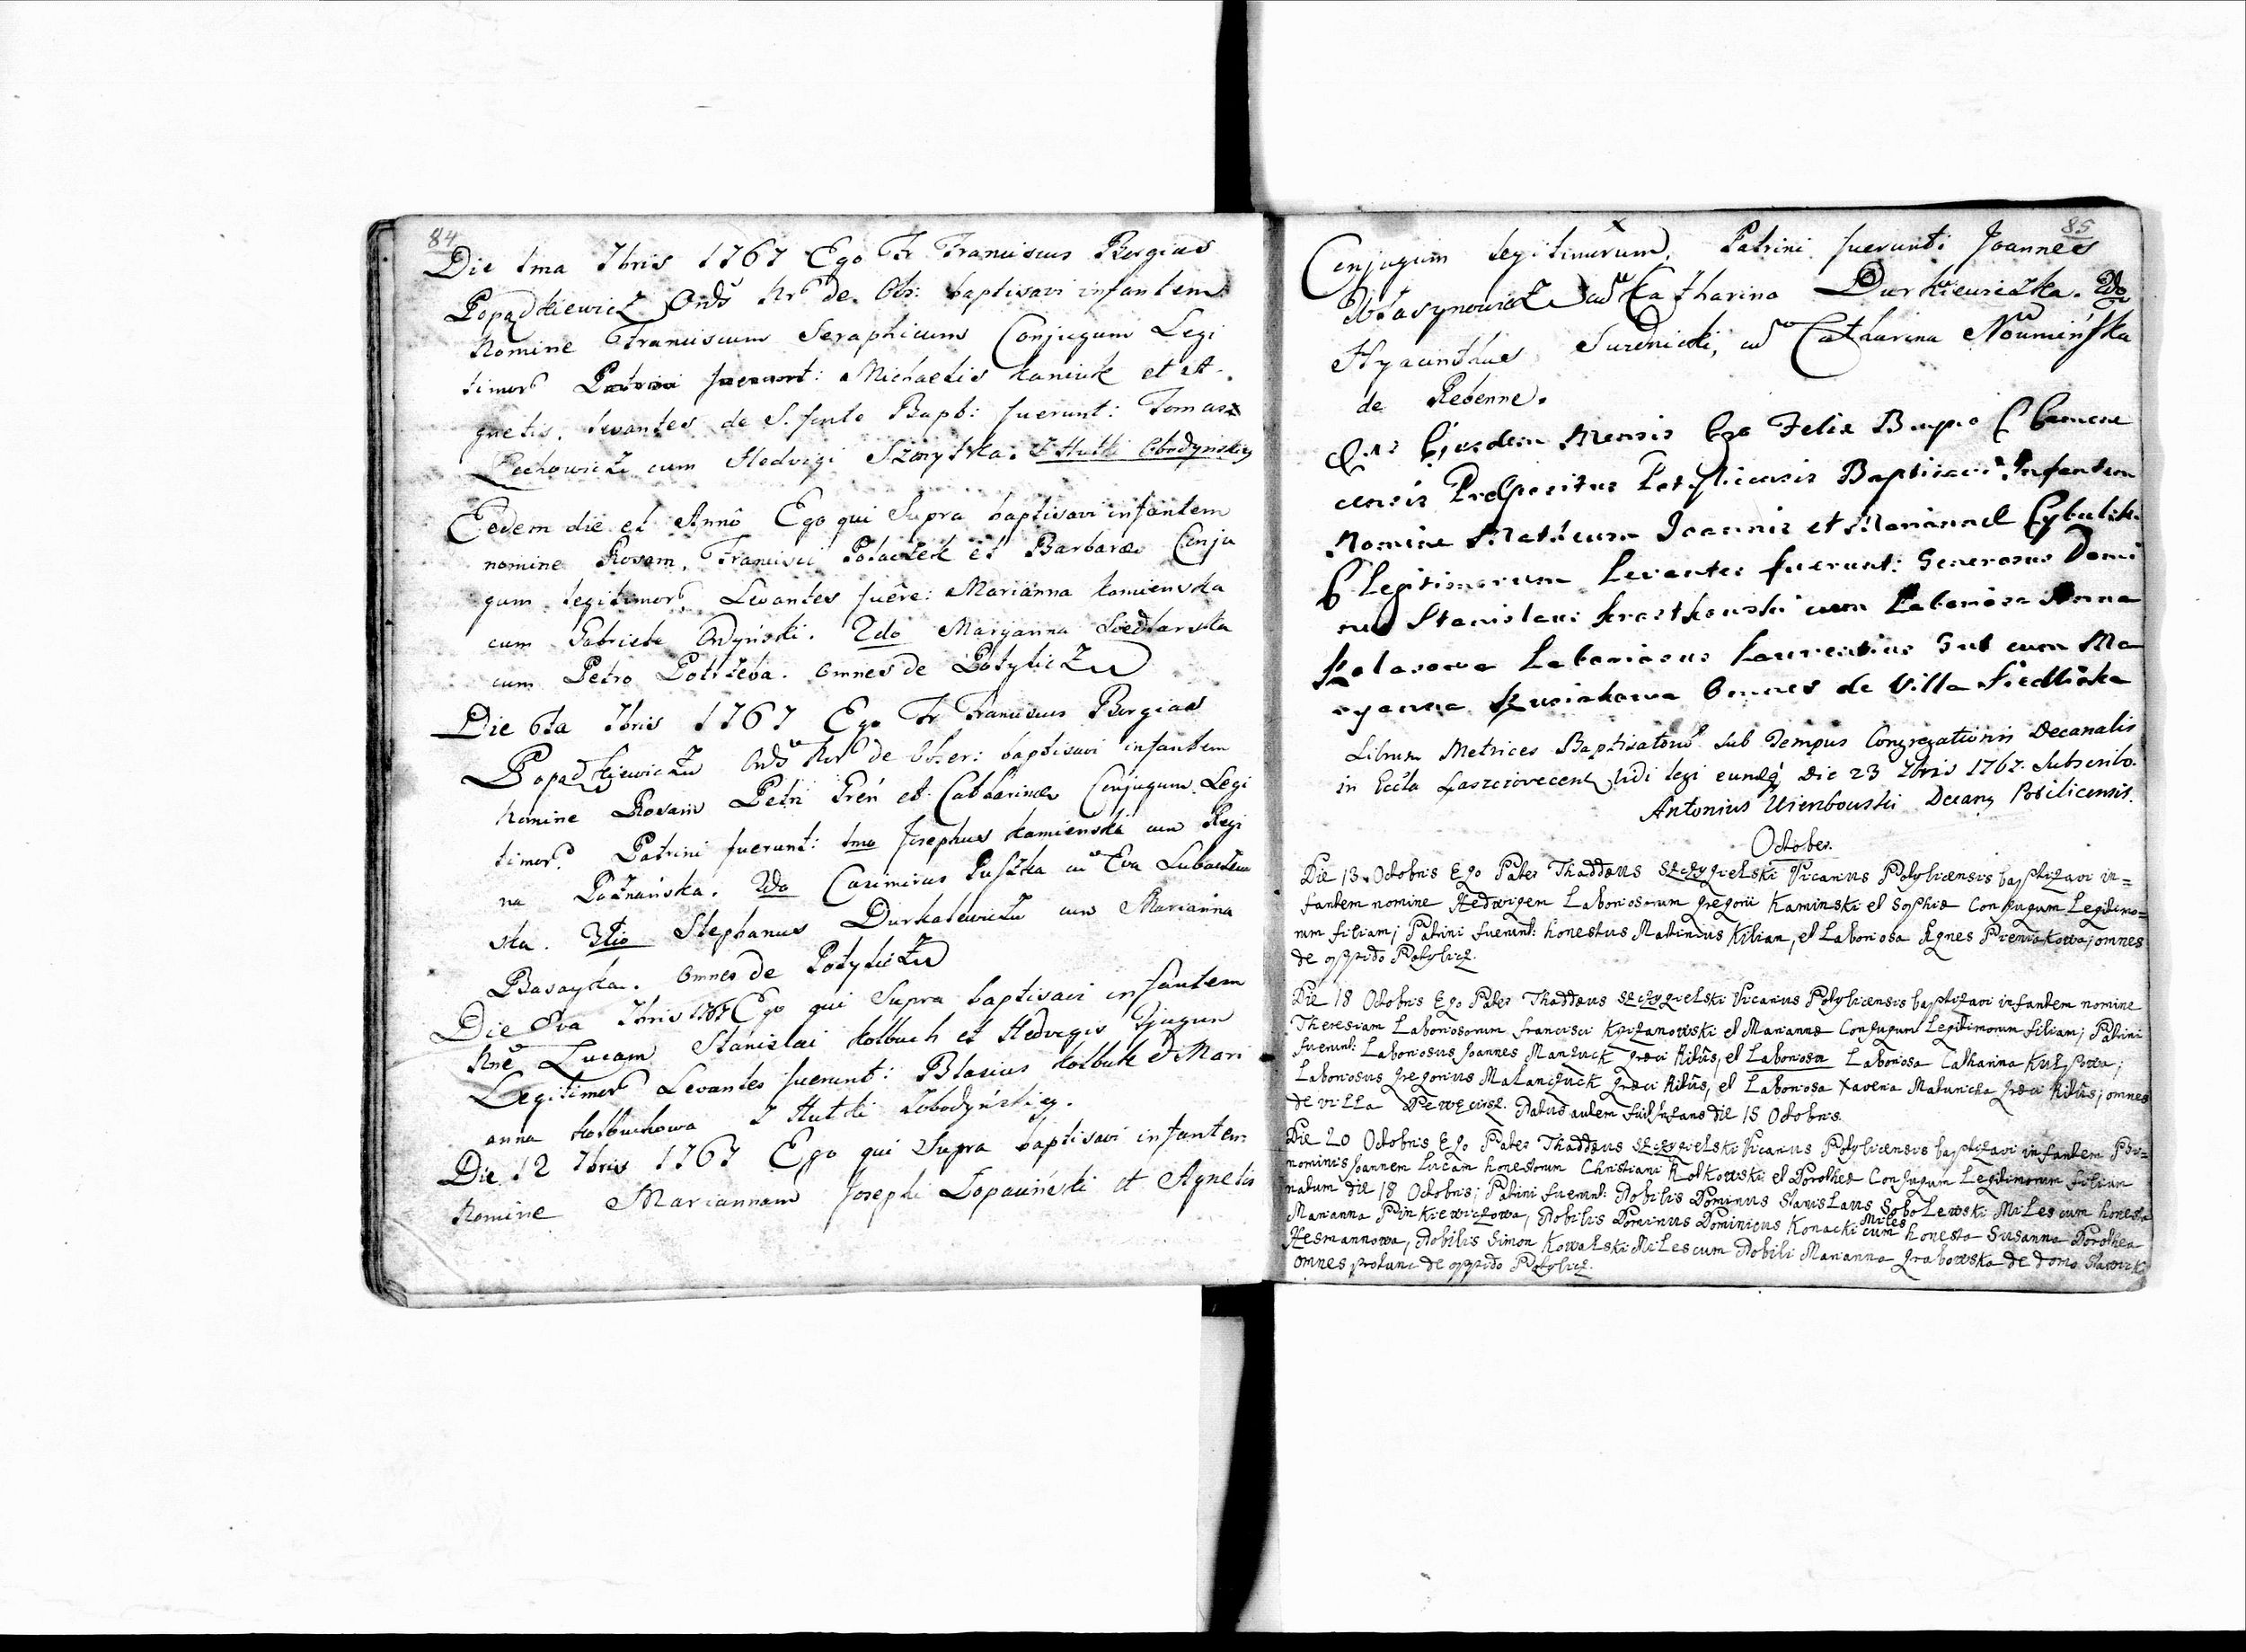 84
Die 1ma 7bris 1767 Ego Fr Franciscus Borgias
Popądkiewicz Ords Mrũ de Obs: baptisavi infantem
Nomine Franciscum Seraphicum Conjugum Legi
timorũ Patrini fuerunt: Michaelis Kaniuk et A-
gnetis. Levantes de S. fonte Bapt: fuerunt: Tomasz
Lechowicz cum Hedvigi Szozytka. Z Hutki Obodyńskiey
Eodem die et Annô Ego qui Supra baptisavi infantem
nomine Rosam, Francisci Polaczek et Barbaræ Conju
gum legitimorũ, Levantes fuêre: Marianna Kamienska
cum Gabriele Ordyński. 2do Maryanna Siedlarska
cum Petro Potrzeba. omnes de Potylicz
Die 6ta 7bris 1767 Ego Fr Franciscus Borgias
Popądkiewicz Ords Mrũ de Obser: baptisavi infantem
Nomine Rosam Petri Greń et Catharinæ Conjugum Legi
timorũ. Patrini fuerunt: 1mo Josephus Kamienski cum Regi
na Poznańska. 2do Casimirus Puszka cũ Eva Lubaczew
ska. 3tio Stephanus Durkalewicz cum Marianna
Basayka. omnes de Potylicz
Die 8va 7bris 1767 Ego qui Supra baptisavi infantem
Nnẽ Lucam Stanislai Kolbuch et Hedvigis Cjugum
Legitimorũ Levantes fuerunt: Blasius Kolbuk & Mari
anna Kolbuchowa Z Hutki Łobodyńskiey.
Die 12 7bris 1767 Ego qui Supra baptisavi infantem
Nomine Mariannam Josephi Lopaciński et Agnetis
85
Conjugum legitimorum, Patrini fuerunt: Joannes
cũ Catharina Durkiewiczka. 2do
Hyacinthus cũ Catharina
de Rebenne.
Ejusdem Mensis Ego Felix
censis Præpositus Potyliciensis Baptisavi Infantem
Nomine Matheum Joannis et Mariannæ
C Legitimorum Levantes fuerunt: Generosus Domi
nus Stanislaus cum Laboriosa Anna
Laboriosus Laurentius Gut cum Ma
ryanna Omnes de Villa Siedliska
Librum Metrices Baptisatorũ sub Tempus Congregationis Decanalis
in Eccla vidi legi eundq; die 23 7bris 1767. Subscribo.
Antonius Decang Potilicensis.
October.
Die 13 Octobris Ego Pater Thaddæus Szczygielski Vicarius Potyliciensis baptizavi in=
fantem nomine Hedvigem Laboriosorum Gregorii Kaminski et Sophiæ Conjugum Legitimo=
rum filiam; Patrini fuerunt: honestus Martinus Kilian, et Laboriosa Agnes Preniakowa; omnes
de oppido Potylicz.
Die 18 Octobris Ego Pater Thaddæus Szczygielski Vicarius Potyliciensis baptizavi infantem nomine
Theresiam Laboriosorum Francisci Krizanowski et Mariannæ Conjugum Legitimorum filiam; Patrini
fuerunt: Laboriosus Joannes Manzuck Græci Ritûs, et Laboriosa Laboriosa Catharina
Laboriosus Gregorius Malanczuck Græci Ritûs, et Laboriosa Xaveria Græci Ritûs; omnes
de villa Natus autem fuit infans die 15 Octobris.
Die 20 Octobris Ego Pater Thaddæus Szczygielski Vicarius Potyliciensis baptizavi infantem
nominis Joannem Lucam honestorum Christiani Rotkowski et Dorotheæ Conjugum Legitimorum filium
natum die 18 Octobris; Patrini fuerunt: Nobilis Dominus StanisLaus SoboLewski MiLes cum honesta
Marianna Pinkiewiczowa, Nobilis Dominus Dominicus Konacki Miles cum honesta Susanna Dorothea
Hesmannowa, Nobilis Simon Kowalski MiLes cum Nobili Marianna Grabowska de domo
omnes protunc de oppido Potylicz.